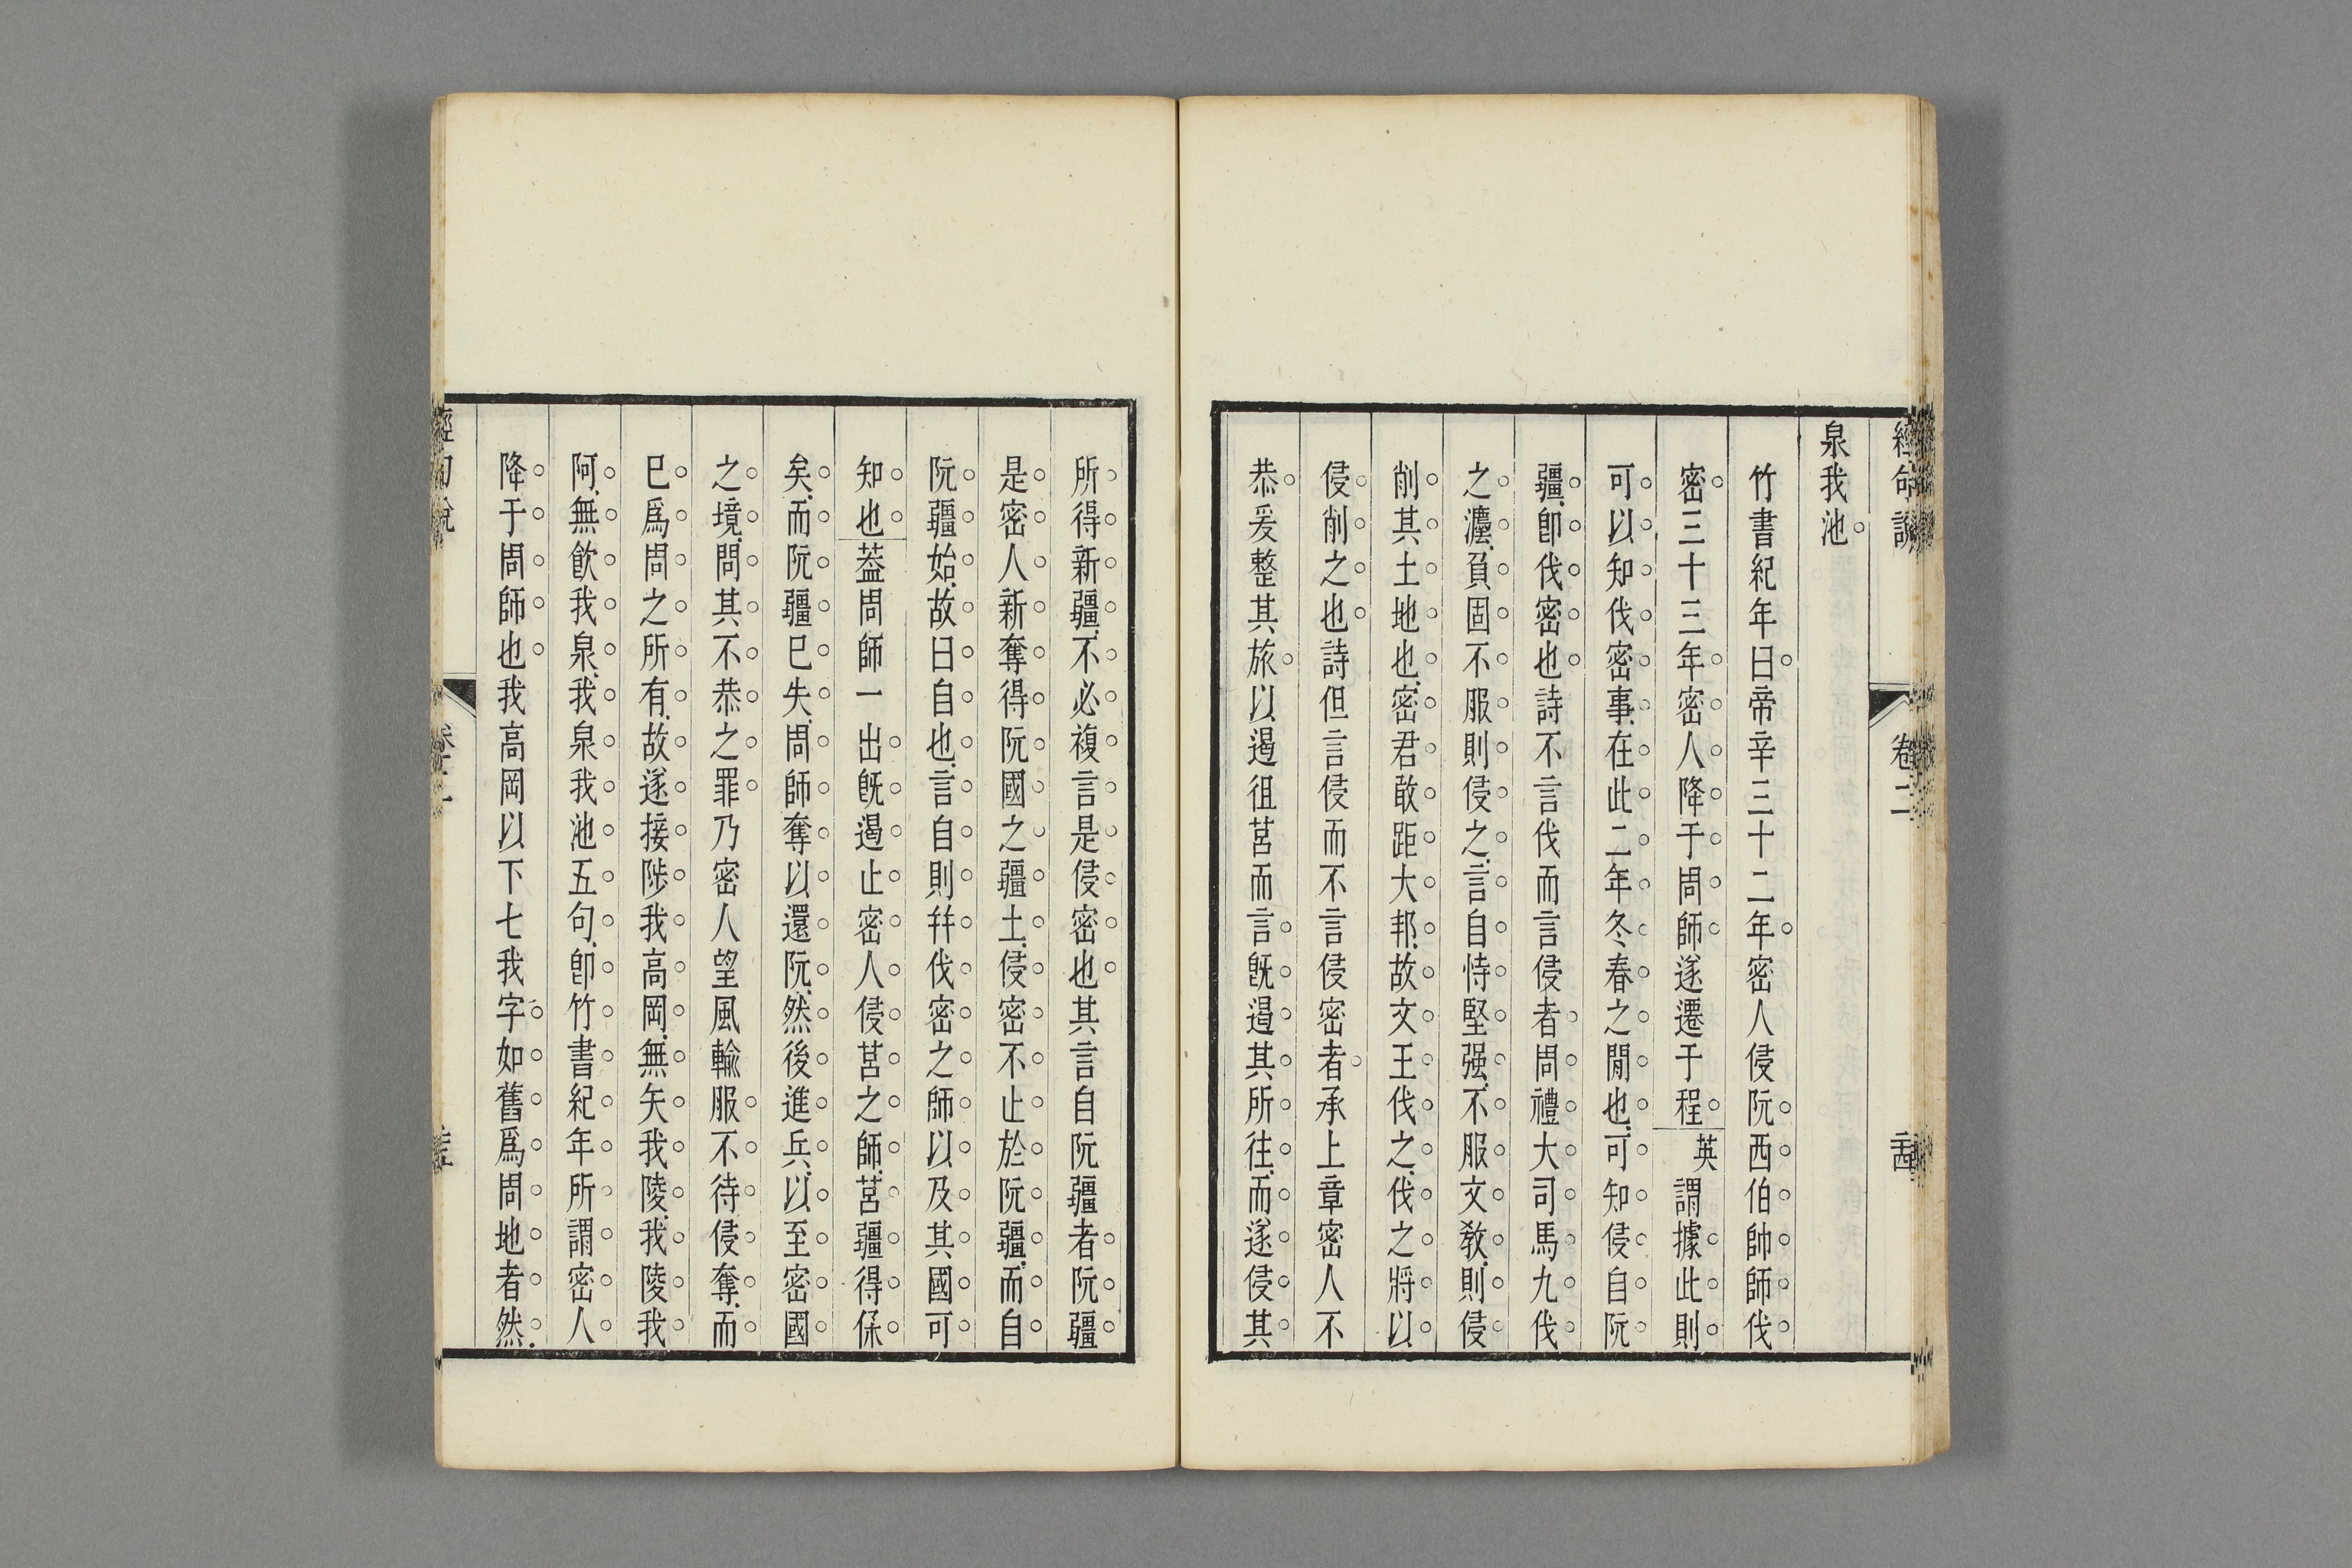 經句說
卷二
泉我池
竹書紀年曰帝辛三十二年密人侵阮西伯帥師伐
密三十三年密人降于周師遂遷于程英謂據此則
可以知伐密事在此二年冬春之閒也可知侵自阮
疆卽伐密也詩不言伐而言侵者周禮大司馬九伐
之灋負固不服則侵之言自恃堅强不服文敎則侵
削其土地也密君敢距大邦故文王伐之伐之將以
侵削之也詩但言侵而不言侵密者承上章密人不
恭爰整其旅以遏徂莒而言旣遏其所往而遂侵其
所得新疆不必複言是侵密也其言自阮疆者阮疆
是密人新奪得阮國之疆土侵密不止於阮疆而自
阮疆始故曰自也言自則幷伐密之師以及其國可
知也葢周師一出旣遏止密人侵莒之師莒疆得保
矣而阮疆已失周師奪以還阮然後進兵以至密國
之境問其不恭之罪乃密人望風輸服不待侵奪而
已爲周之所有故遂接陟我高岡無矢我陵我陵我
阿無飲我泉我泉我池五句卽竹書紀年所謂密人
降于周師也我高岡以下七我字如舊爲周地者然